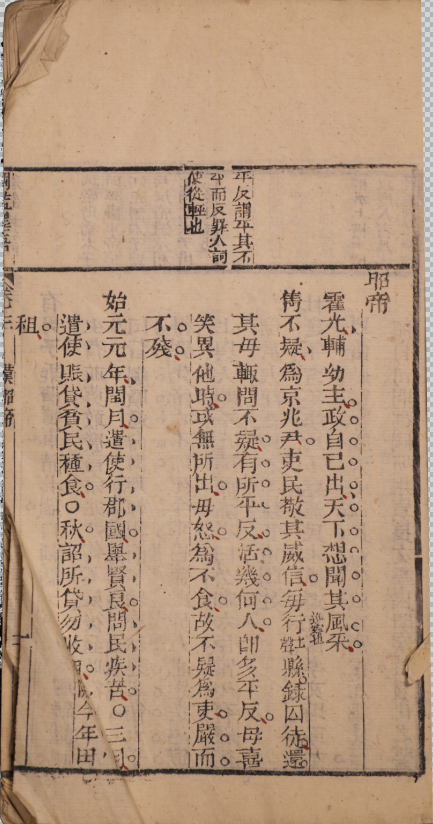 平反謂平其不
平而反罪人詞
使從輕也
昭帝
霍光輔幼主政自己出天下想聞其風采
雋不疑為京兆尹吏民敬其威信每行縣錄囚徒還
其母輒問不疑有所平反活幾何人即多平反母喜
笑異他時或無所出母怒為不食故不疑為吏嚴而
不殘
始元元年閏月遣使行郡國舉賢良問民疾苦〇三月
遣使賑貸貧民種食〇秋詔所貸勿收今年田
租
漢昭帝